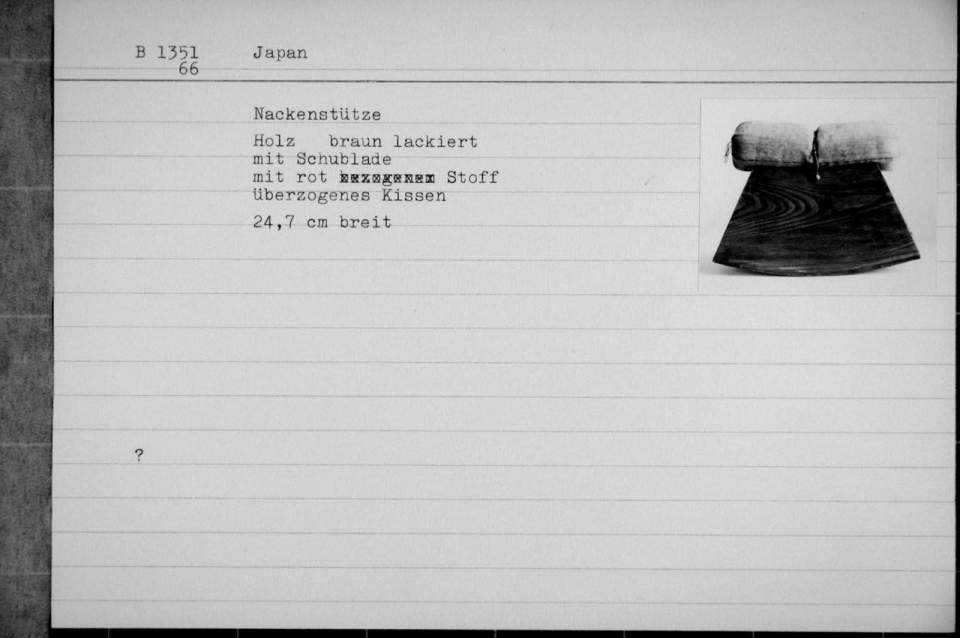 B 1351 Japan
66
Nackenstütze
Holz braun lackiert
mit Schublade
mit rot bezogenem Stoff
überzogenes Kissen
24,7 cm breit
?